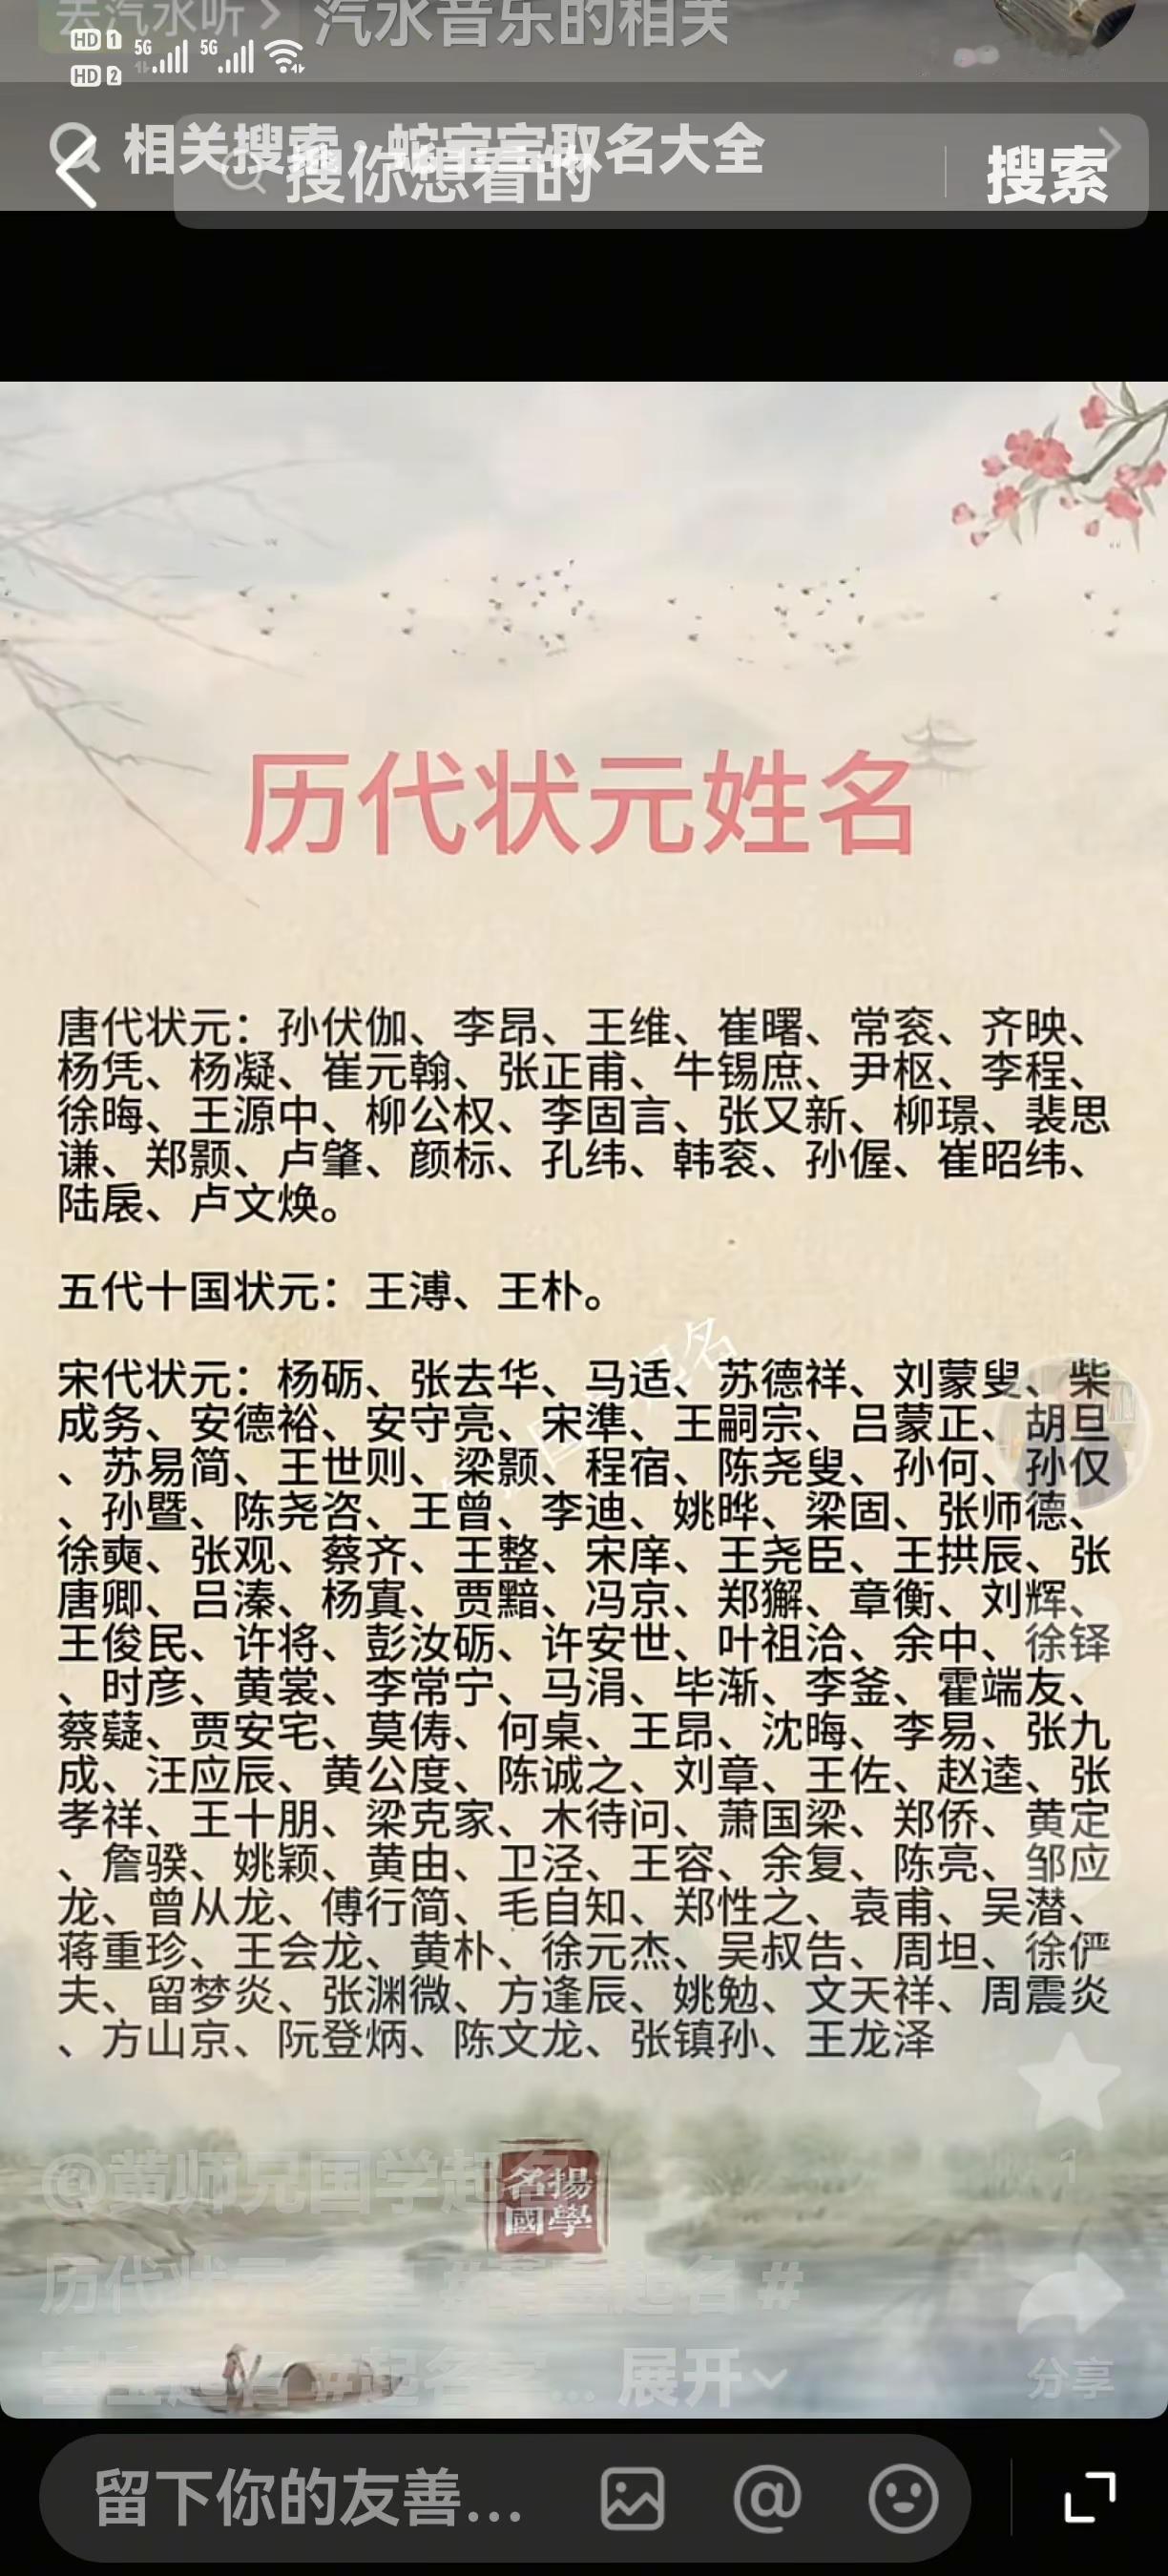 去汽水听 >
汽水音乐的相关
HD 1 5G 5G
HD 2
相关搜索·蛇宝宝取名大全
搜你想看的
搜索
历代状元姓名
唐代状元：孙伏伽、李昂、王维、崔曙、常衮、齐映、
杨凭、杨凝、崔元翰、张正甫、牛锡庶、尹枢、李程、
徐晦、王源中、柳公权、李固言、张又新、柳璟、裴思
谦、郑颢、卢肇、颜标、孔纬、韩衮、孙偓、崔昭纬、
陆扆、卢文焕。
五代十国状元：王溥、王朴。
宋代状元：杨砺、张去华、马适、苏德祥、刘蒙叟、柴
成务、安德裕、安守亮、宋準、王嗣宗、吕蒙正、胡旦
、苏易简、王世则、梁颢、程宿、陈尧叟、孙何、孙仅
、孙暨、陈尧咨、王曾、李迪、姚晔、梁固、张师德、
徐奭、张观、蔡齐、王整、宋庠、王尧臣、王拱辰、张
唐卿、吕溱、杨寘、贾黯、冯京、郑獬、章衡、刘辉、
王俊民、许将、彭汝砺、许安世、叶祖洽、余中、徐铎
、时彦、黄裳、李常宁、马涓、毕渐、李釜、霍端友、
蔡薿、贾安宅、莫俦、何桌、王昂、沈晦、李易、张九
成、汪应辰、黄公度、陈诚之、刘章、王佐、赵逵、张
孝祥、王十朋、梁克家、木待问、萧国梁、郑侨、黄定
、詹骙、姚颖、黄由、卫泾、王容、余复、陈亮、邹应
龙、曾从龙、傅行简、毛自知、郑性之、袁甫、吴潜、
蒋重珍、王会龙、黄朴、徐元杰、吴叔告、周坦、徐俨
夫、留梦炎、张渊微、方逢辰、姚勉、文天祥、周震炎
、方山京、阮登炳、陈文龙、张镇孙、王龙泽
@黄师兄国学起名
名揚
國學
1
历代状元
起名 #
宝宝起名 #起名字... 展开
分享
留下你的友善...